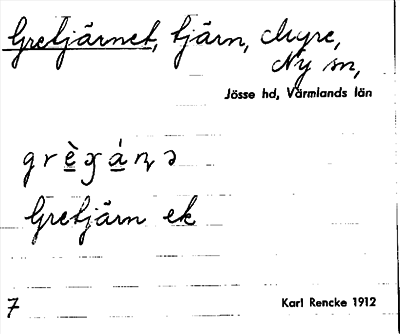 Gretjärnet, tjärn,
Ny sn,
Jösse hd, Värmlands län
Gretjärn ek
7
Karl Rencke 1912